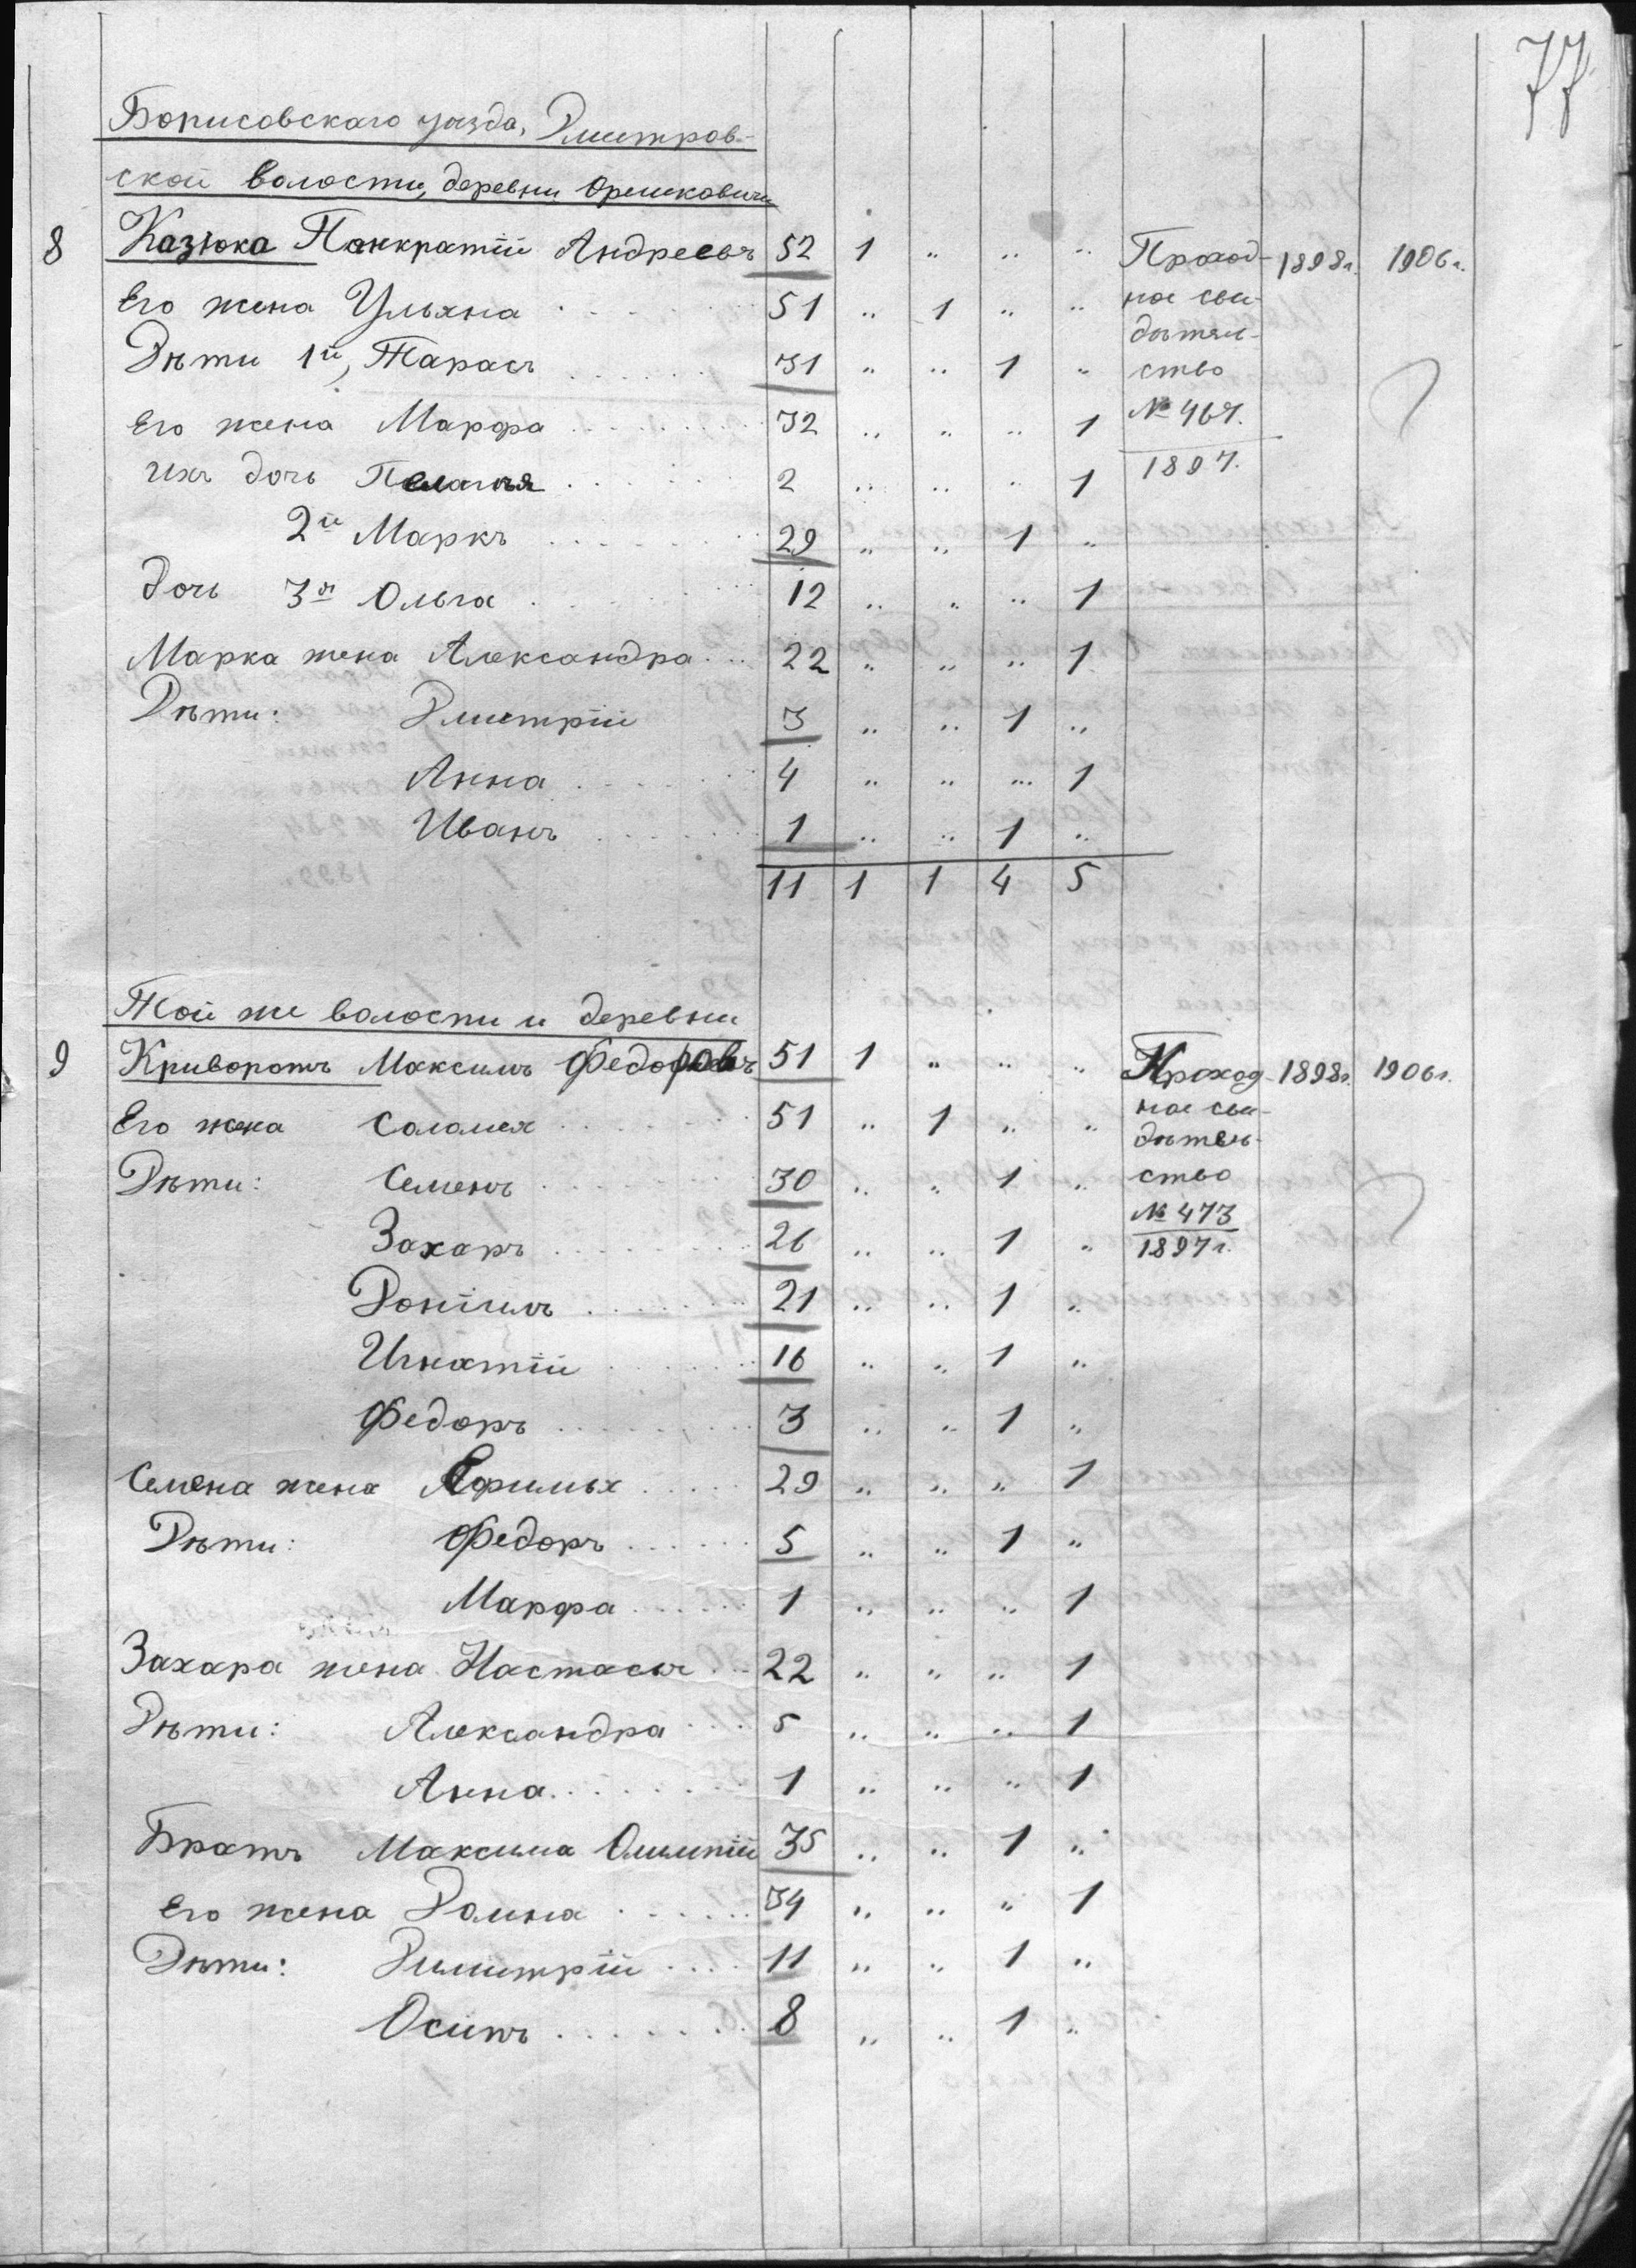 77
Борисовскаго уѣзда, Дмитров-
ской волости, деревни Орешковичи
8 Казюка Панкратій Андреевъ 52 1 " " " Проход- 1898 г. 1906 г.
Его жена Ульяна 51 " 1 " " ное сви-
дѣтель-
Дѣти 1й, Тарасъ 31 " " 1 " ство
Его жена Марфа 32 " " " 1 № 467.
Ихъ дочь Пелагея 2 " " " 1 1897.
2й Маркъ 29 " " 1 "
дочь 3я Ольга 12 " " " 1
Марка жена Александра 22 " " " 1
Дѣти: Дмитрій 3 " " 1 "
Анна 4 " " " 1
Иванъ 1 " " 1 "
11 1 1 4 5
Той же волости и деревни
9 Криворотъ Максимъ Федоровъ 51 1 " " " Проход- 1898 г. 1906 г.
Его жена Саломея 51 " 1 " " ное сви-
дѣтель-
Дѣти: Семенъ 30 " " 1 " ство
№ 473
Захаръ 26 " " 1 " 1897 г.
Даніилъ 21 " " 1 "
Игнатій 16 " " 1 "
Федоръ 3 " " 1 "
Семена жена 29 " " " 1
Дѣти: Федоръ 5 " " 1 "
Марфа 1 " " " 1
Захара жена Настасья 22 " " " 1
Дѣти: Александра 5 " " " 1
Анна 1 " " " 1
Братъ Максима 35 " " 1 "
Его жена Домна 34 " " " 1
Дѣти: Димитрій 11 " " 1 "
Осипъ 8 " " 1 "